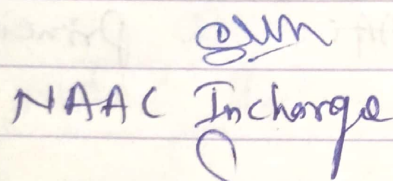 NAAC Incharge